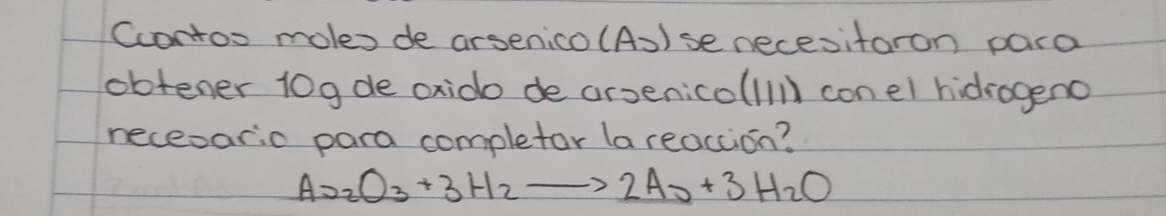 Cuantos moles de arsenico (As) se necesitaron para
obtener 10g de oxido de arsenico(III) con el hidrogeno
necesario para completar la reacción?
As₂O₃ + 3H₂ → 2As + 3H₂O